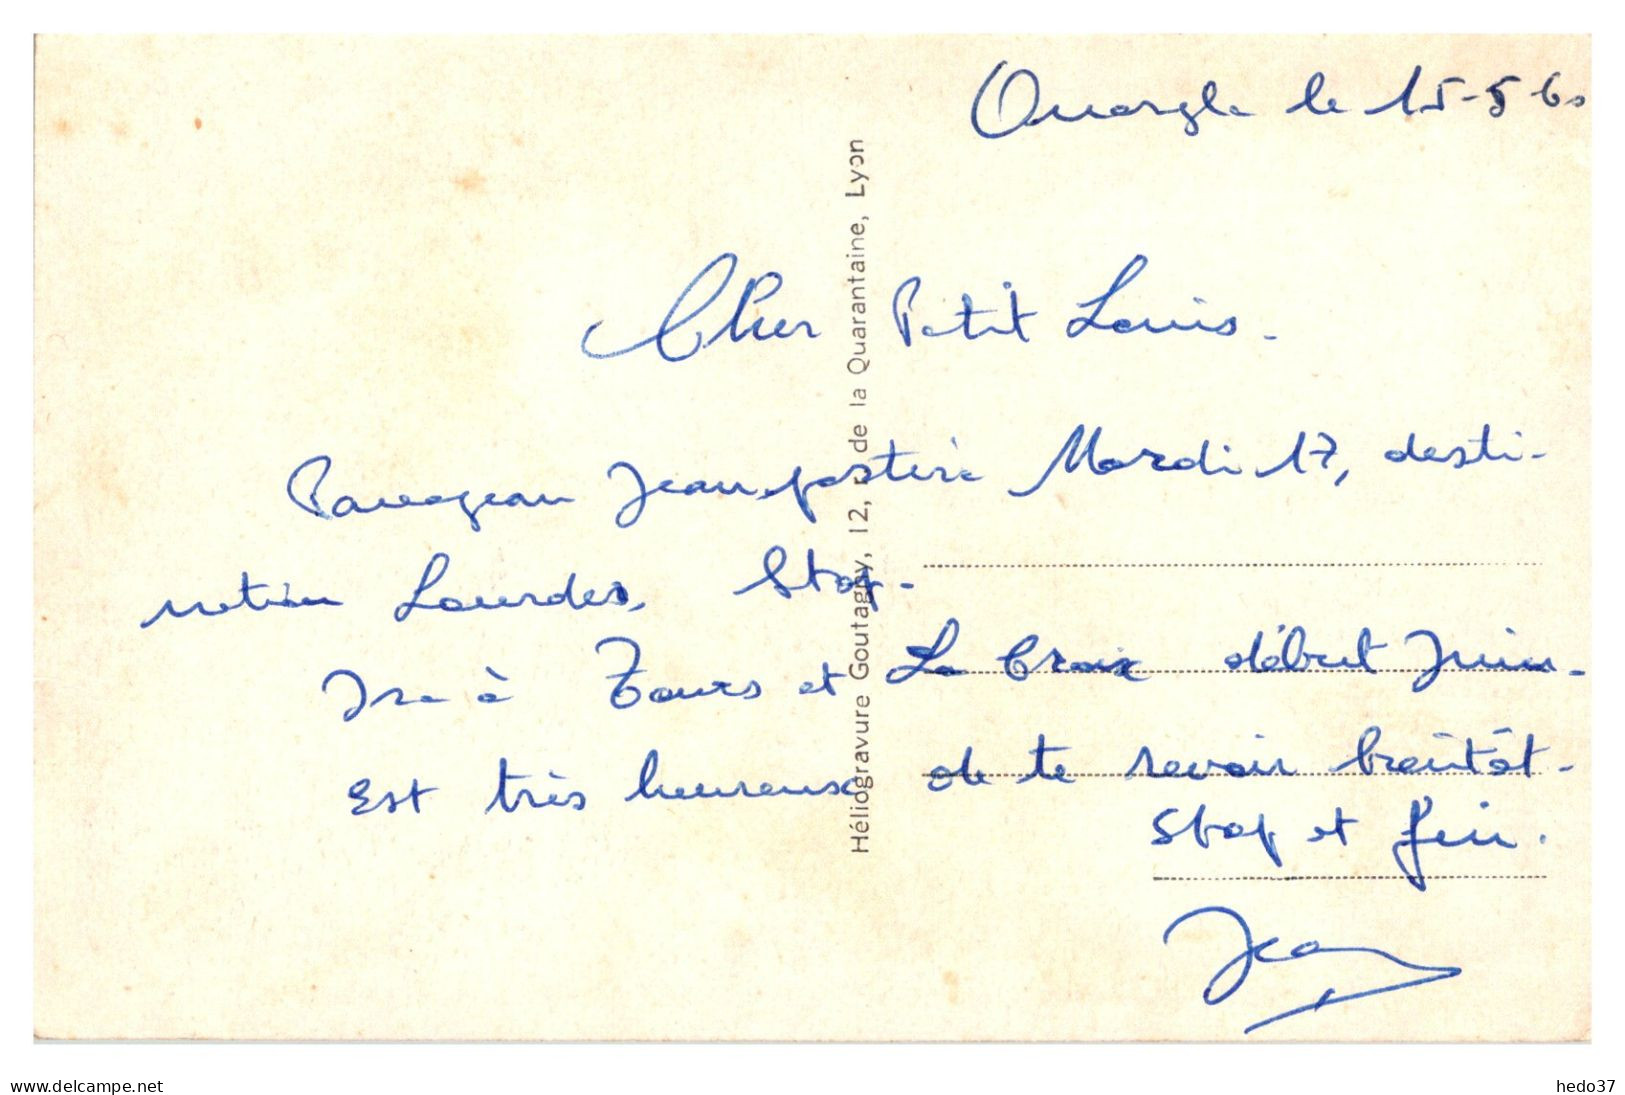 Ouargla le 15-5-60
Cher Petit Louis.
Jean, partira Mardi 17, desti-
nation Lourdes, Stop.
Ira à Tours et La Croix début Juin.
Est très heureux de te revoir bientôt.
Stop et fin.
Jean
Héliogravure Goutagny, 12, r. de la Quarantaine, Lyon
www.delcampe.net
hedo37